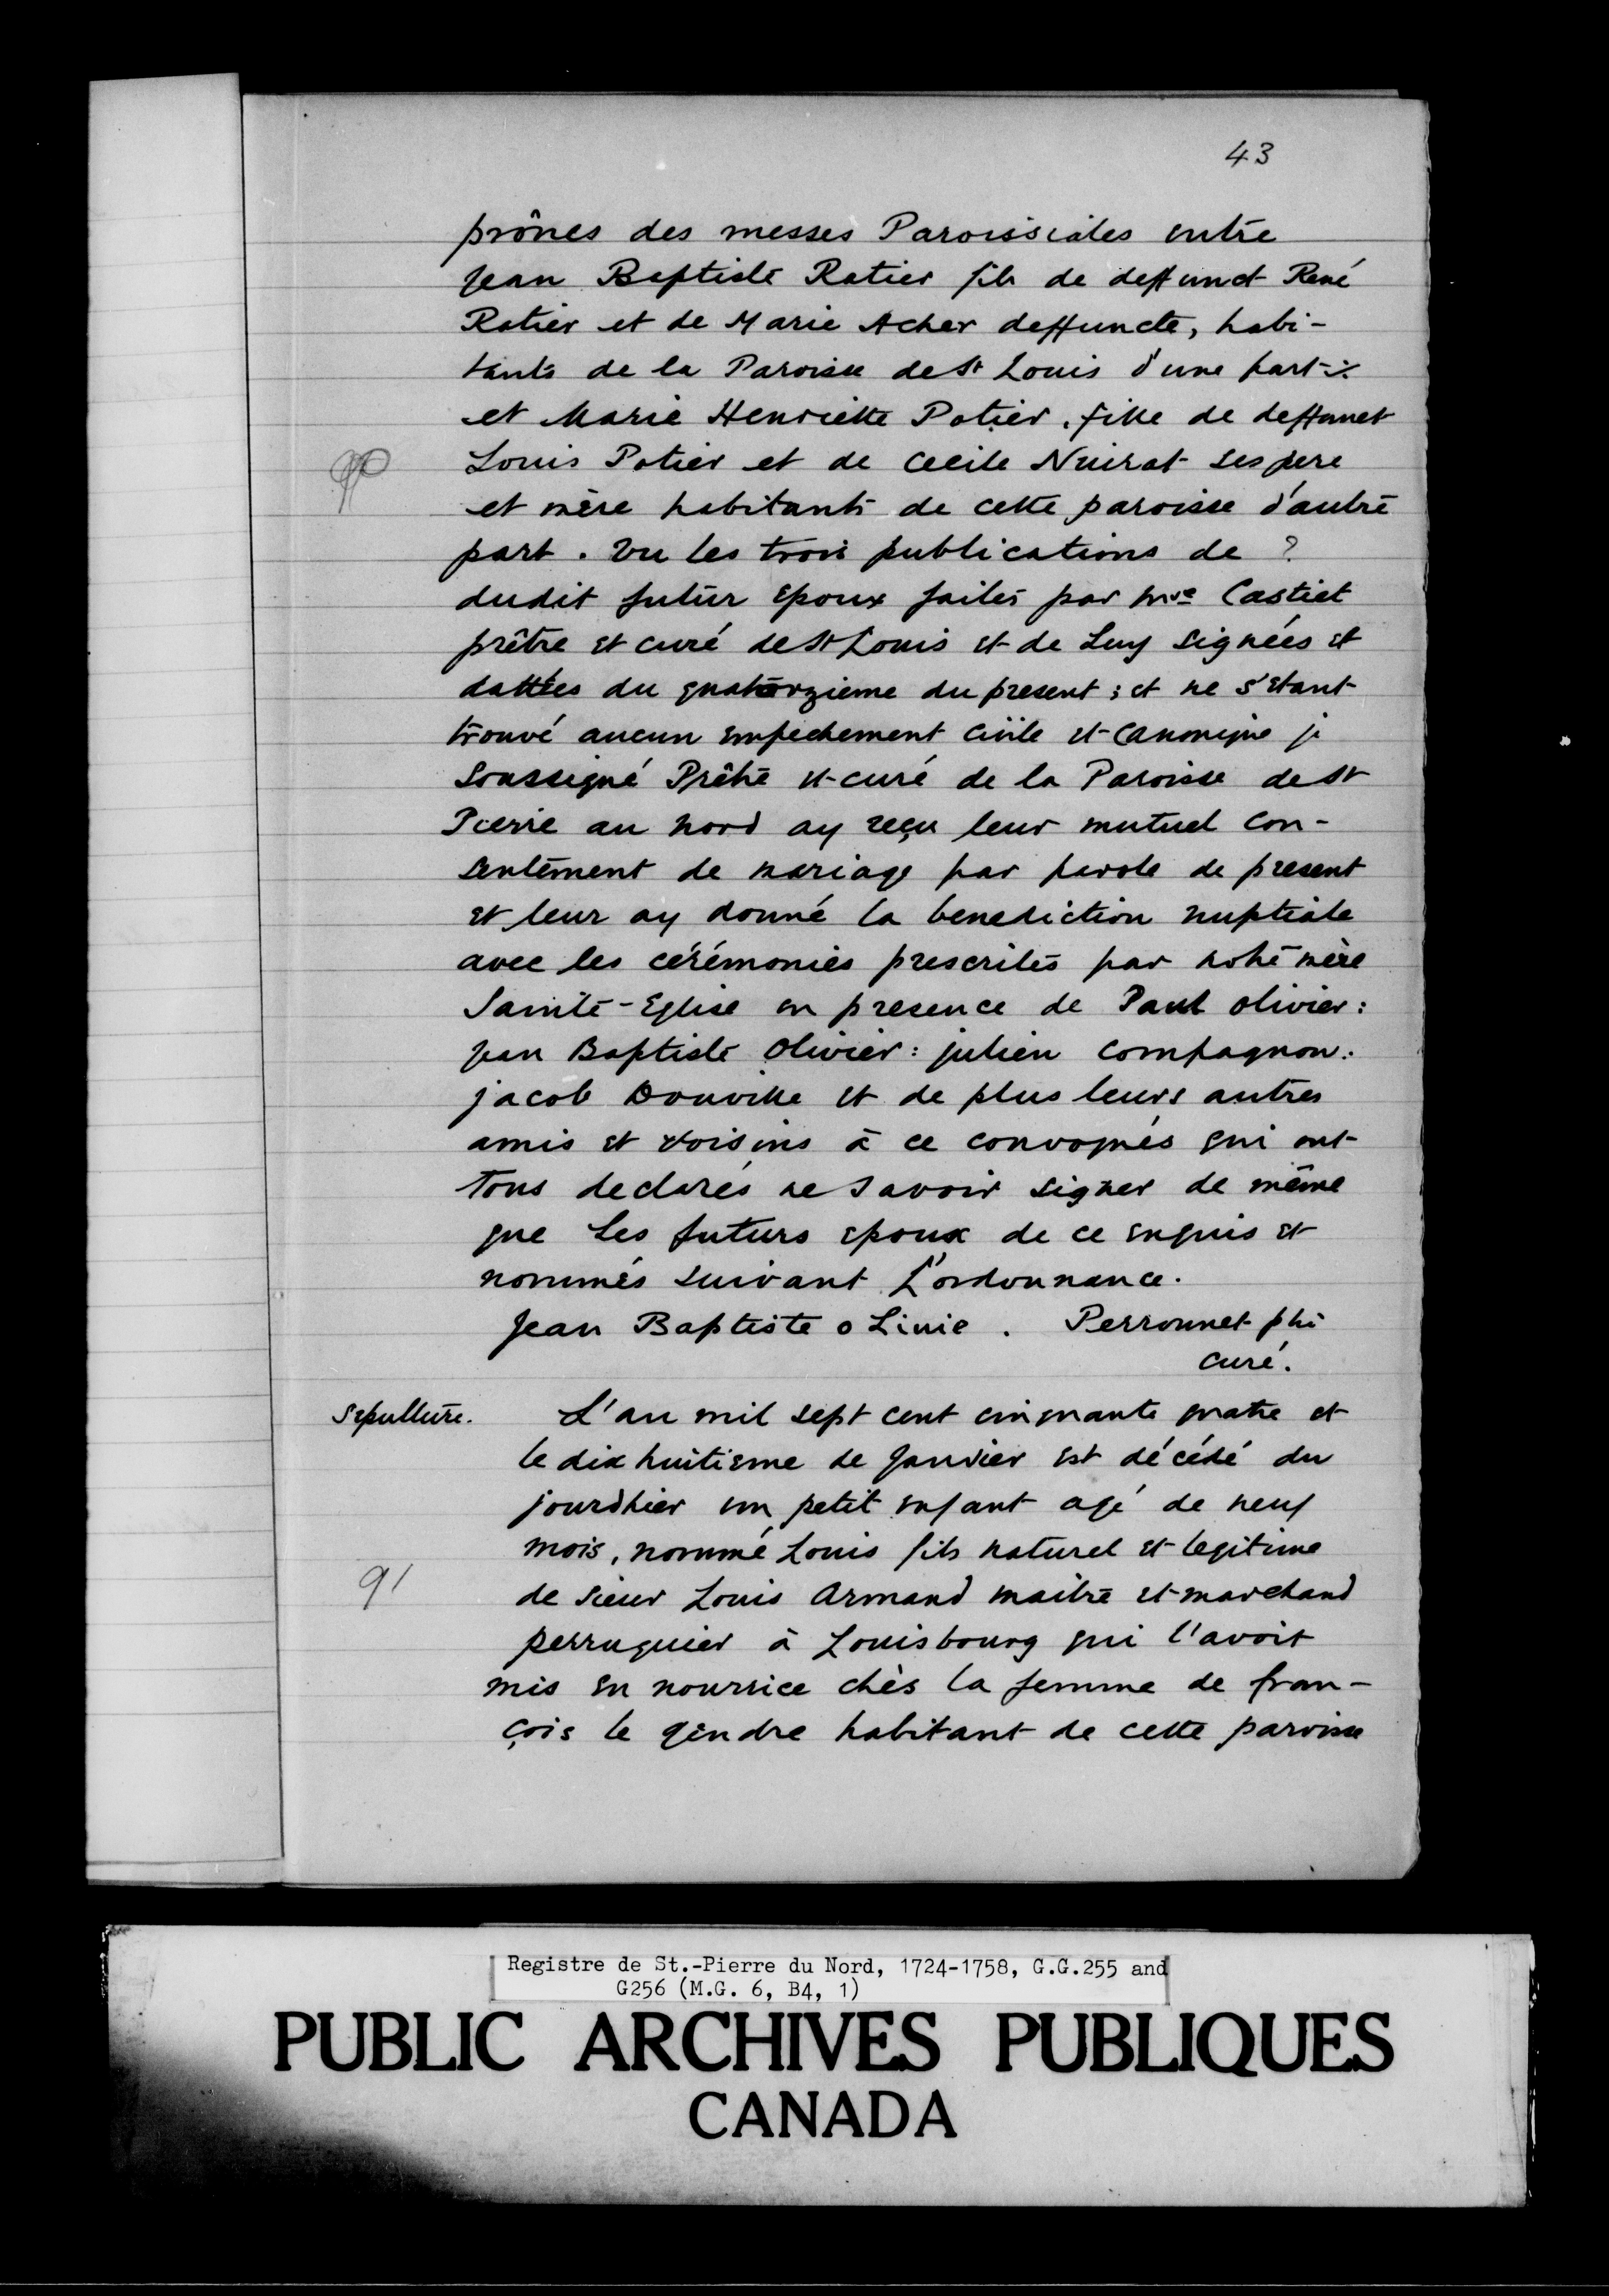 43
prônes des messes Paroissiales entre
Jean Baptiste Ratier fils de deffunct René
Ratier et de Marie Acher deffuncte, habi-
tants de la Paroisse de St Louis d'une part
et Marie Henriette Potier, fille de deffunct
90
Louis Potier et de Cecile Nuirat ses pere
et mère habitants de cette paroisse d'autre
part. Vu les trois publications de ?
dudit futur epoux faites par Castiet
prêtre et curé de St Louis et de Luy signées et
dattées du quatorzieme du present; et ne s'etant
trouvé aucun empechement civile et canonique je
soussigné Prêtre et curé de la Paroisse de St
Pierre au nord ay reçu leur mutuel con-
sentement de mariage par parole de present
et leur ay donné la benediction nuptiale
avec les cérémonies prescrites par notre mère
Sainte-Eglise en presence de Paul olivier:
jean Baptiste Olivier: julien compagnon.
jacob Douville et de plus leurs autres
amis et voisins à ce convoqués qui ont
tous declarés ne savoir signer de même
que Les futurs epoux de ce enquis et
nommés suivant L'ordonnance.
Jean Baptiste o Livie. Perronnet ptre
curé.
Sepulture. L'an mil sept cent cinquante quatre et
le dix huitieme de Janvier est décédé du
jourdhier un petit enfant agé de neuf
mois, nommé Louis fils naturel et legitime
91
de sieur Louis Armand maitre et marchand
perruquier à Louisbourg qui l'avoit
mis en nourrice chès la femme de fran-
çois le gendre habitant de cette paroisse
Registre de St.-Pierre du Nord, 1724-1758, G.G.255 and
G256 (M.G. 6, B4, 1)
PUBLIC ARCHIVES PUBLIQUES
CANADA